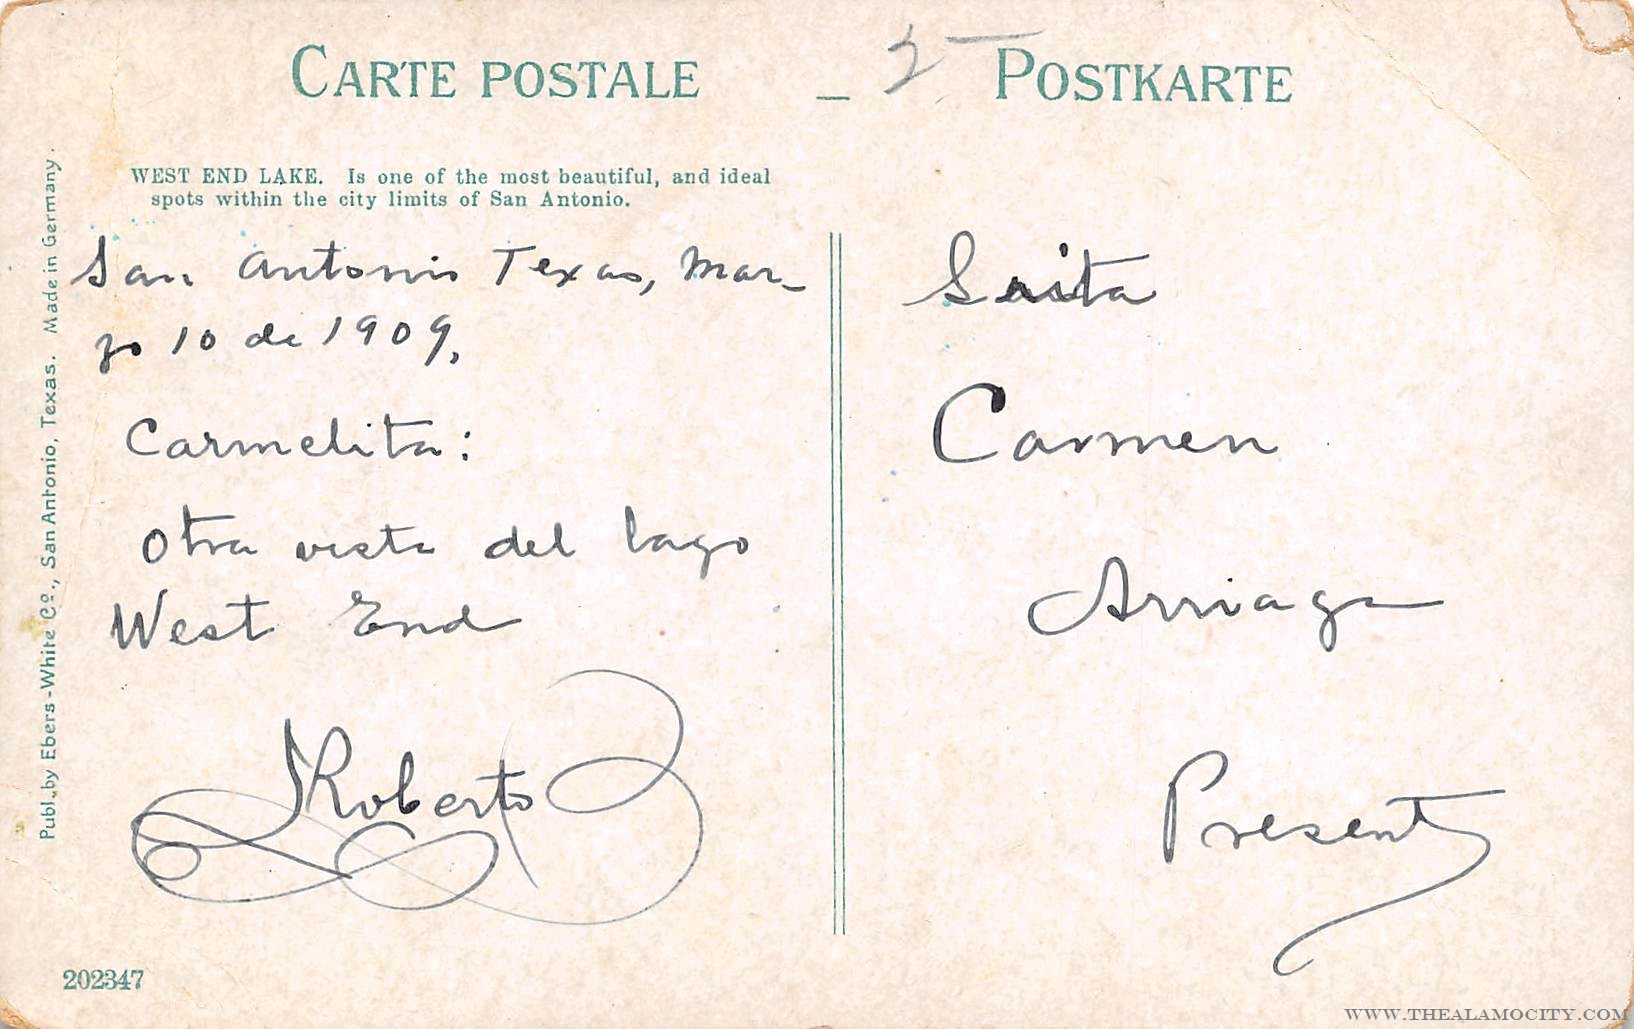 CARTE POSTALE – POSTKARTE
WEST END LAKE. Is one of the most beautiful, and ideal
spots within the city limits of San Antonio.
San Antonio Texas, Mar-
zo 10 de 1909.
Carmelita:
Otra vista del lago
West End
Roberto
Srita
Carmen
Arriaga
Present
Publ. by Ebers-White Co., San Antonio, Texas. Made in Germany.
202347
WWW.THEALAMOCITY.COM